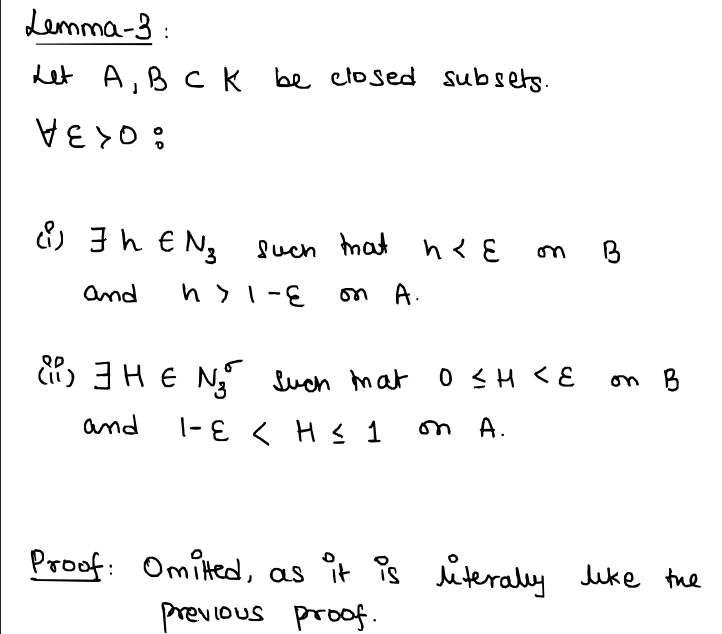 Lemma-3 :
Let A, B ⊂ K be closed subsets.
∀ ε > 0 :
(i) ∃ h ∈ N₃ such that h < ε on B
and h > 1-ε on A.
(ii) ∃ H ∈ N₃^σ such that 0 ≤ H < ε on B
and 1-ε < H ≤ 1 on A.
Proof: Omitted, as it is literaly like the
previous proof.